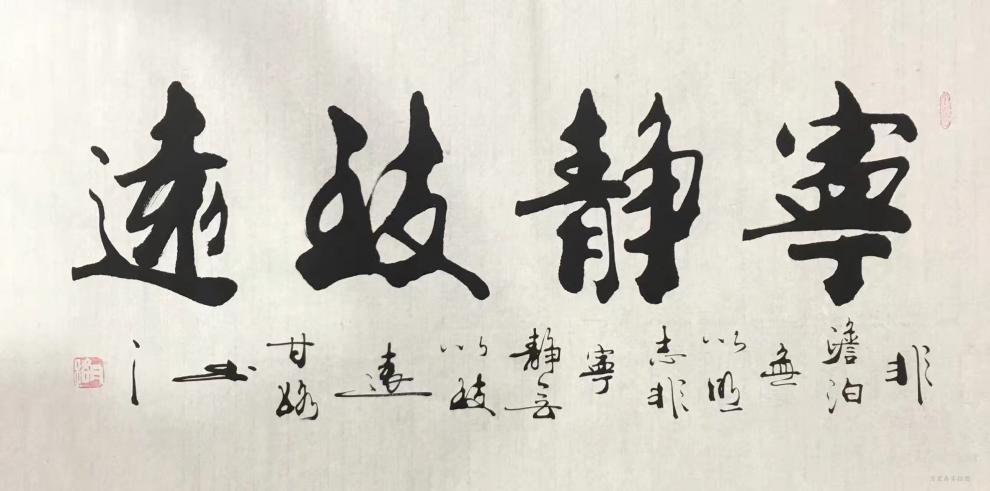 寧靜致遠
非澹泊無以明志非寧靜無以致遠甘露書